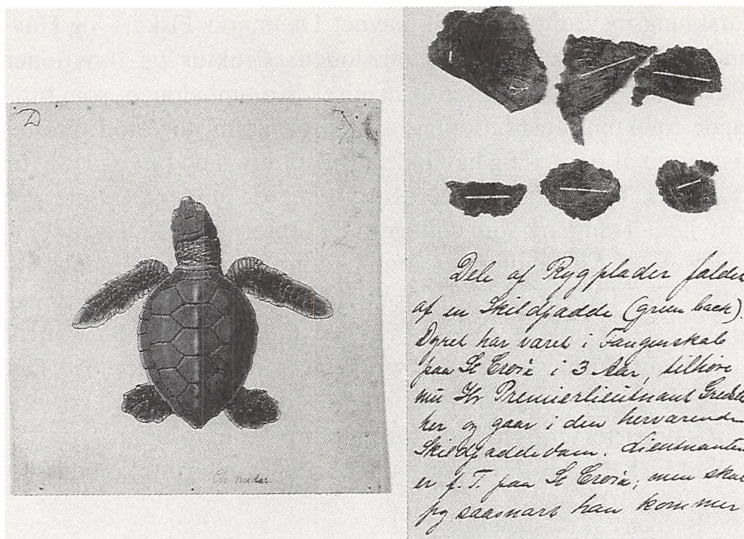 D
Dele af Rygplader falde
af en Skildpadde (green back).
Dyret har været i Fangenskab
paa St Croix i 3 Aar, tilhøre
nu Hr Premierlieutnant
her og gaar i den herværende
Skildpaddedam. Lieutnanten
er p. T. paa St Croix; men skal
jeg saasnart han kommer